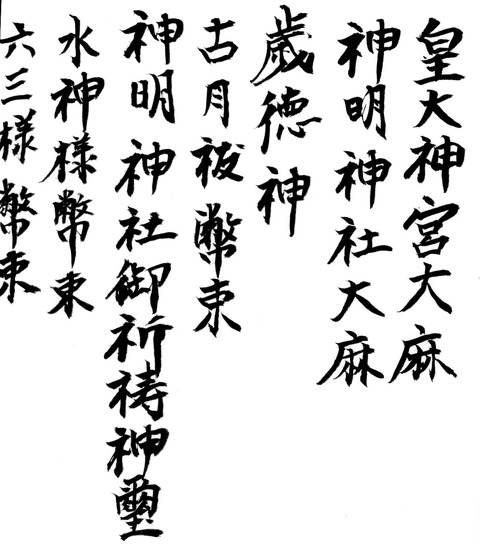 皇大神宮大麻
神明神社大麻
歳徳神
古月祓幣束
神明神社御祈祷神璽
水神様幣束
六三様幣束